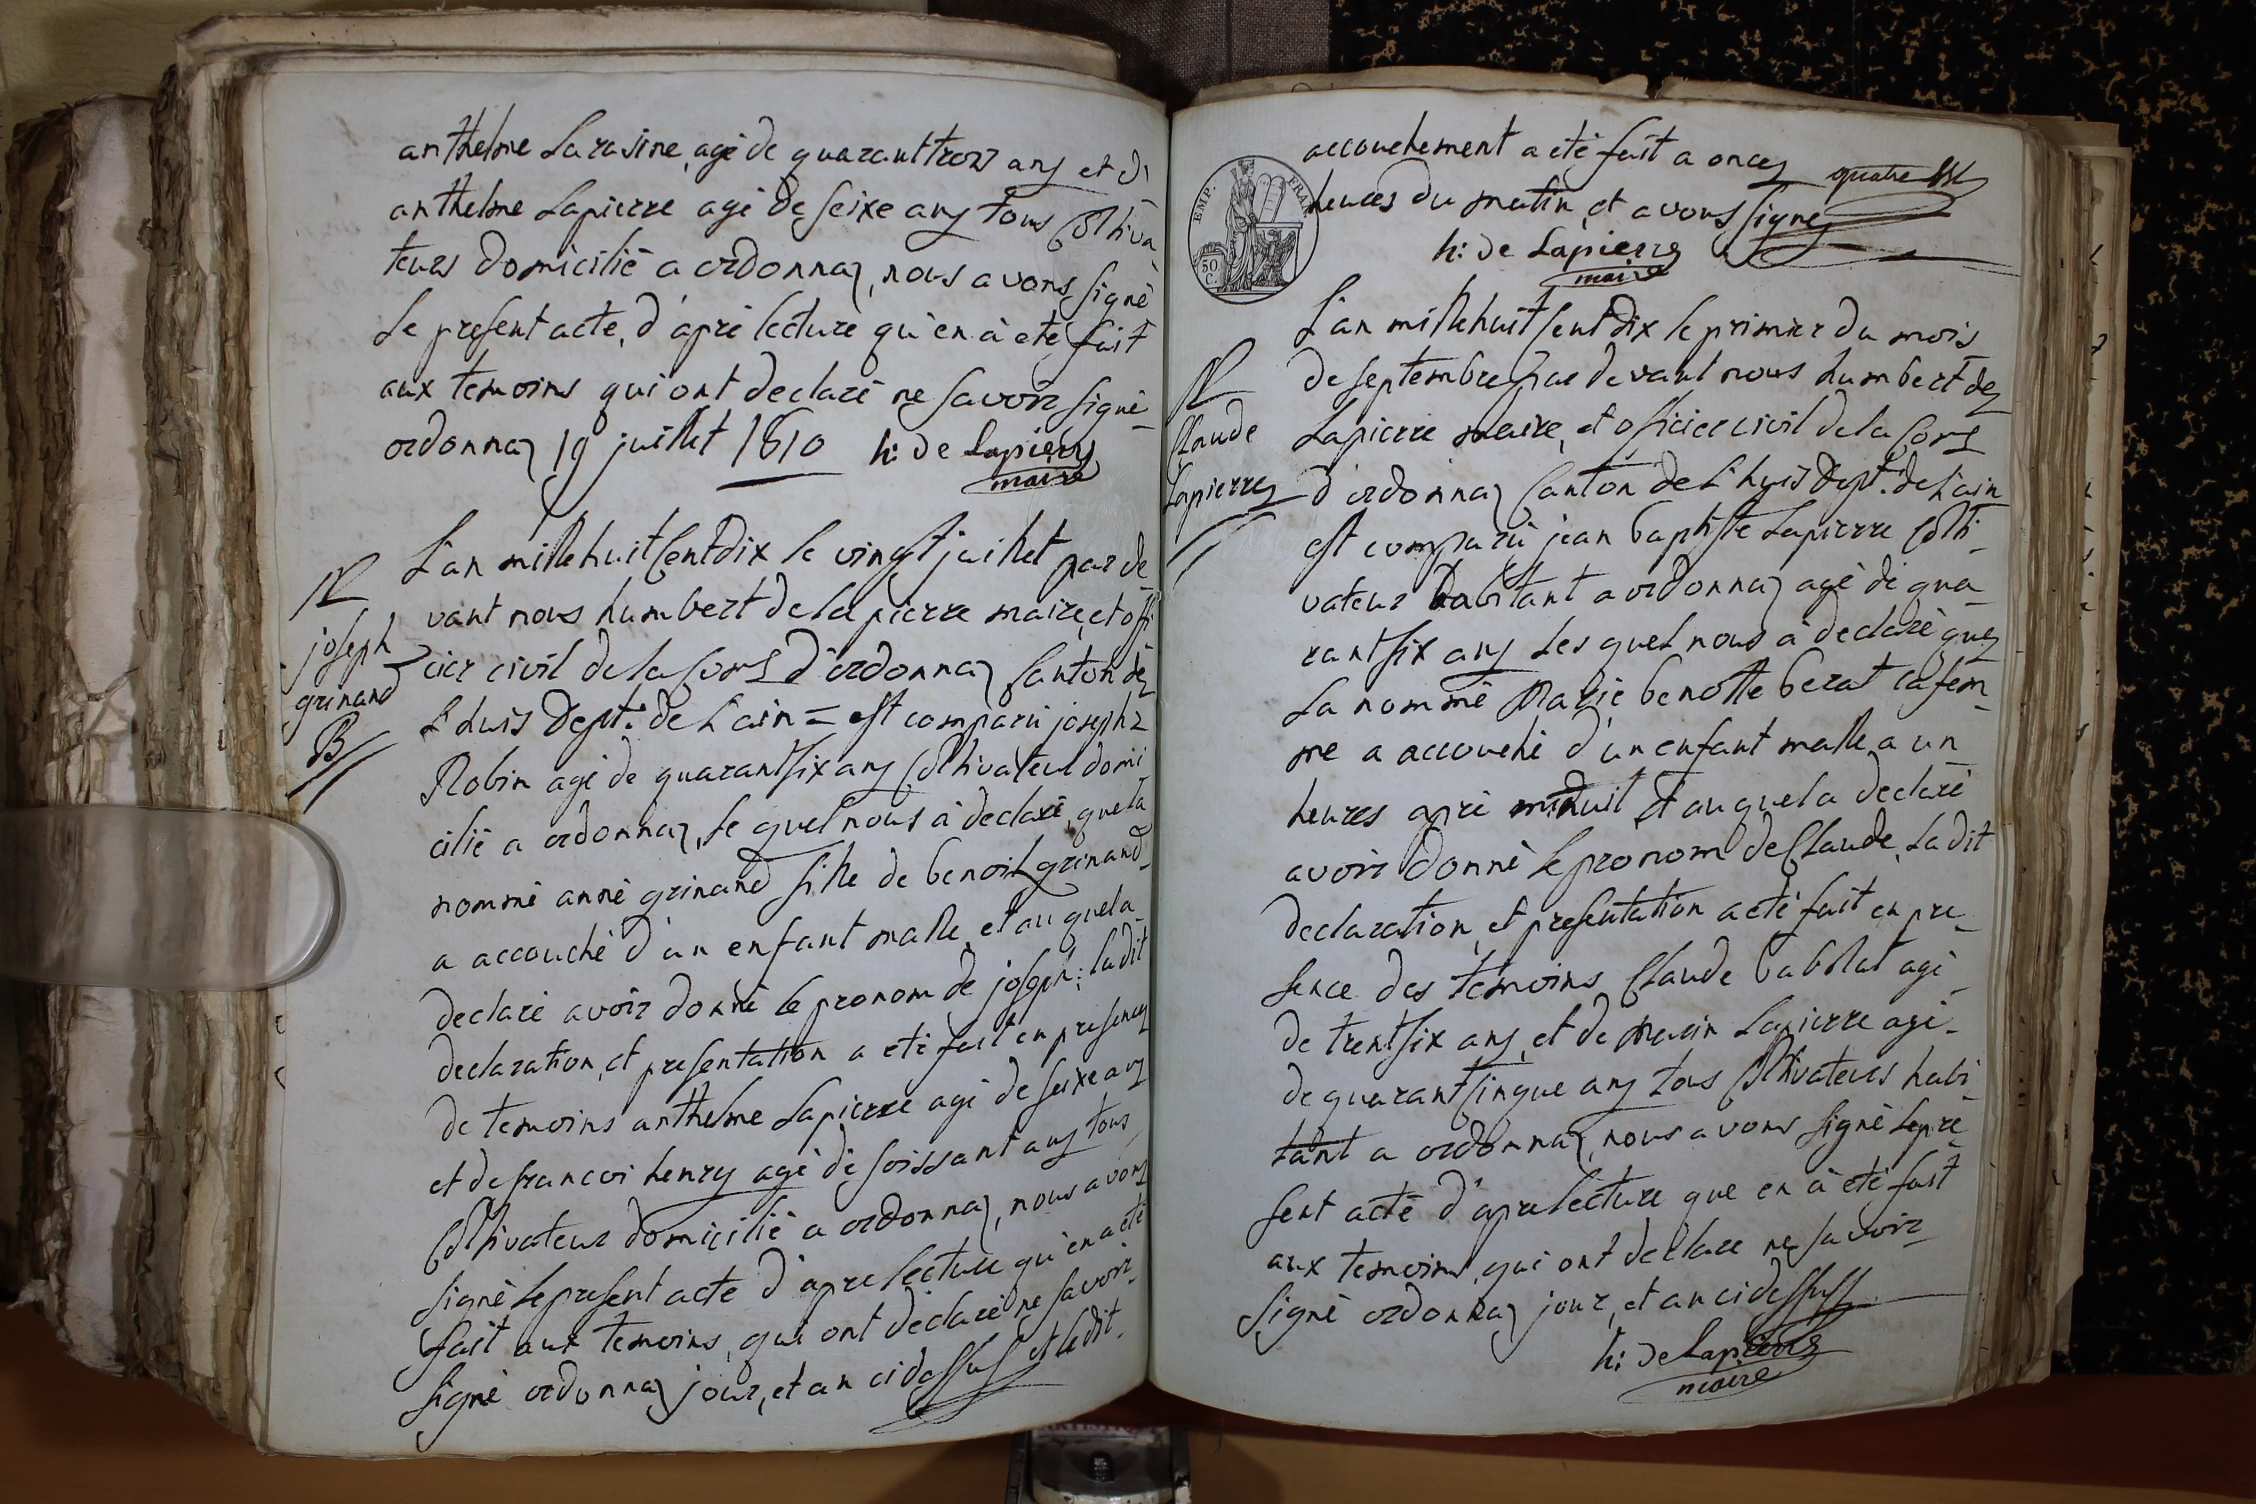 anthelme Larasine, agé de quarant trois ans et d'
anthelme Lapierre agé de seixe ans tous Coltiva
teurs domicilié a ordonnaz, nous avons signé
Le present acte, d'aprè lecture qu'en à eté fait
aux temoins qui ont declaré ne savoir signé
ordonnaz 19 juillet 1810 h: de Lapierre
maire
N
joseph
grinand
B
L'an mille huit Cent dix le vingt juillet par de
vant nous humbert de la pierre maire, et offi
cier civil de la Com d'ordonnaz Canton de
L'huis Dept. de L'ain = est comparu joseph
Robin agé de quarant six ans Coltivateur domi
cilié a ordonnaz, Le quel nous à declaré, que la
nommé anné grinand fille de benoit grinand
a accouché d'un enfant malle, et au quel a
declaré avoir donné le pronom de joseph: la dit
declaration, et presentation a eté fait en presence
de temoins anthelme Lapierre agé de seixe ans
et de francoi henry agé de soissant ans tous
Coltivateur domicilié a ordonnaz, nous avons
signé le present acte d'apre lecture qu'en a eté
fait aux temoins, qui ont declaré ne savoir
signé ordonnaz jour, et an ci dessus et ledit
accouchement a eté fait a onze
heures du matin, et avons signé
quatre
h: de Lapierre
maire
EMP. FRAN.
50 C.
N
Claude
Lapierre
L'an mille huit Cent dix le primier du mois
de septembre par devant nous humbert de
Lapierre maire, et officier civil de la Com
d'ordonnaz Canton de L'huis Dept. de L'ain
est comparu jean baptiste Lapierre Colti
vateur habitant a ordonnaz agé de qua
rant six ans Les quel nous à declaré que
La nommé Marie benoitte berat sa fem
me a accouché d'un enfant malle a un
heures aprè minuit, et au quel a declaré
avoir donné le pronom de Claude, La dit
declaration, et presentation a eté fait en pre
sence des temoins Claude babolat agé
de trent six ans, et de Marin Lapierre agé
de quarant cinque ans tous Coltivateurs habi
tant a ordonnaz, nous avons signé le pre
sent acte d'apre lecture que en à eté fait
aux temoins, qui ont declare ne savoir
signé ordonnaz jour, et an ci dessus
h: de Lapierre
maire